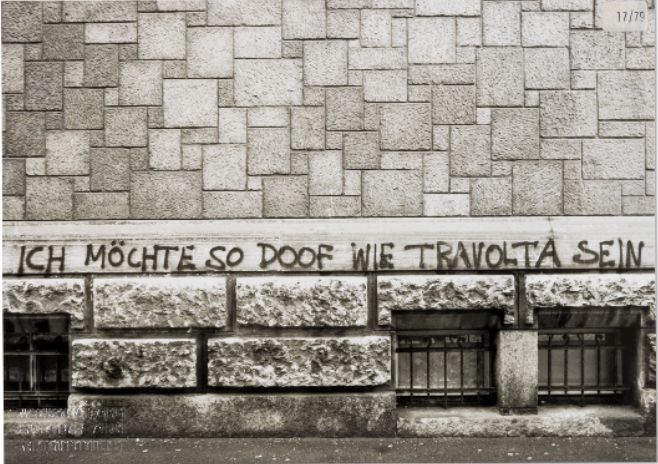 17/79
ICH MÖCHTE SO DOOF WIE TRAVOLTA SEIN